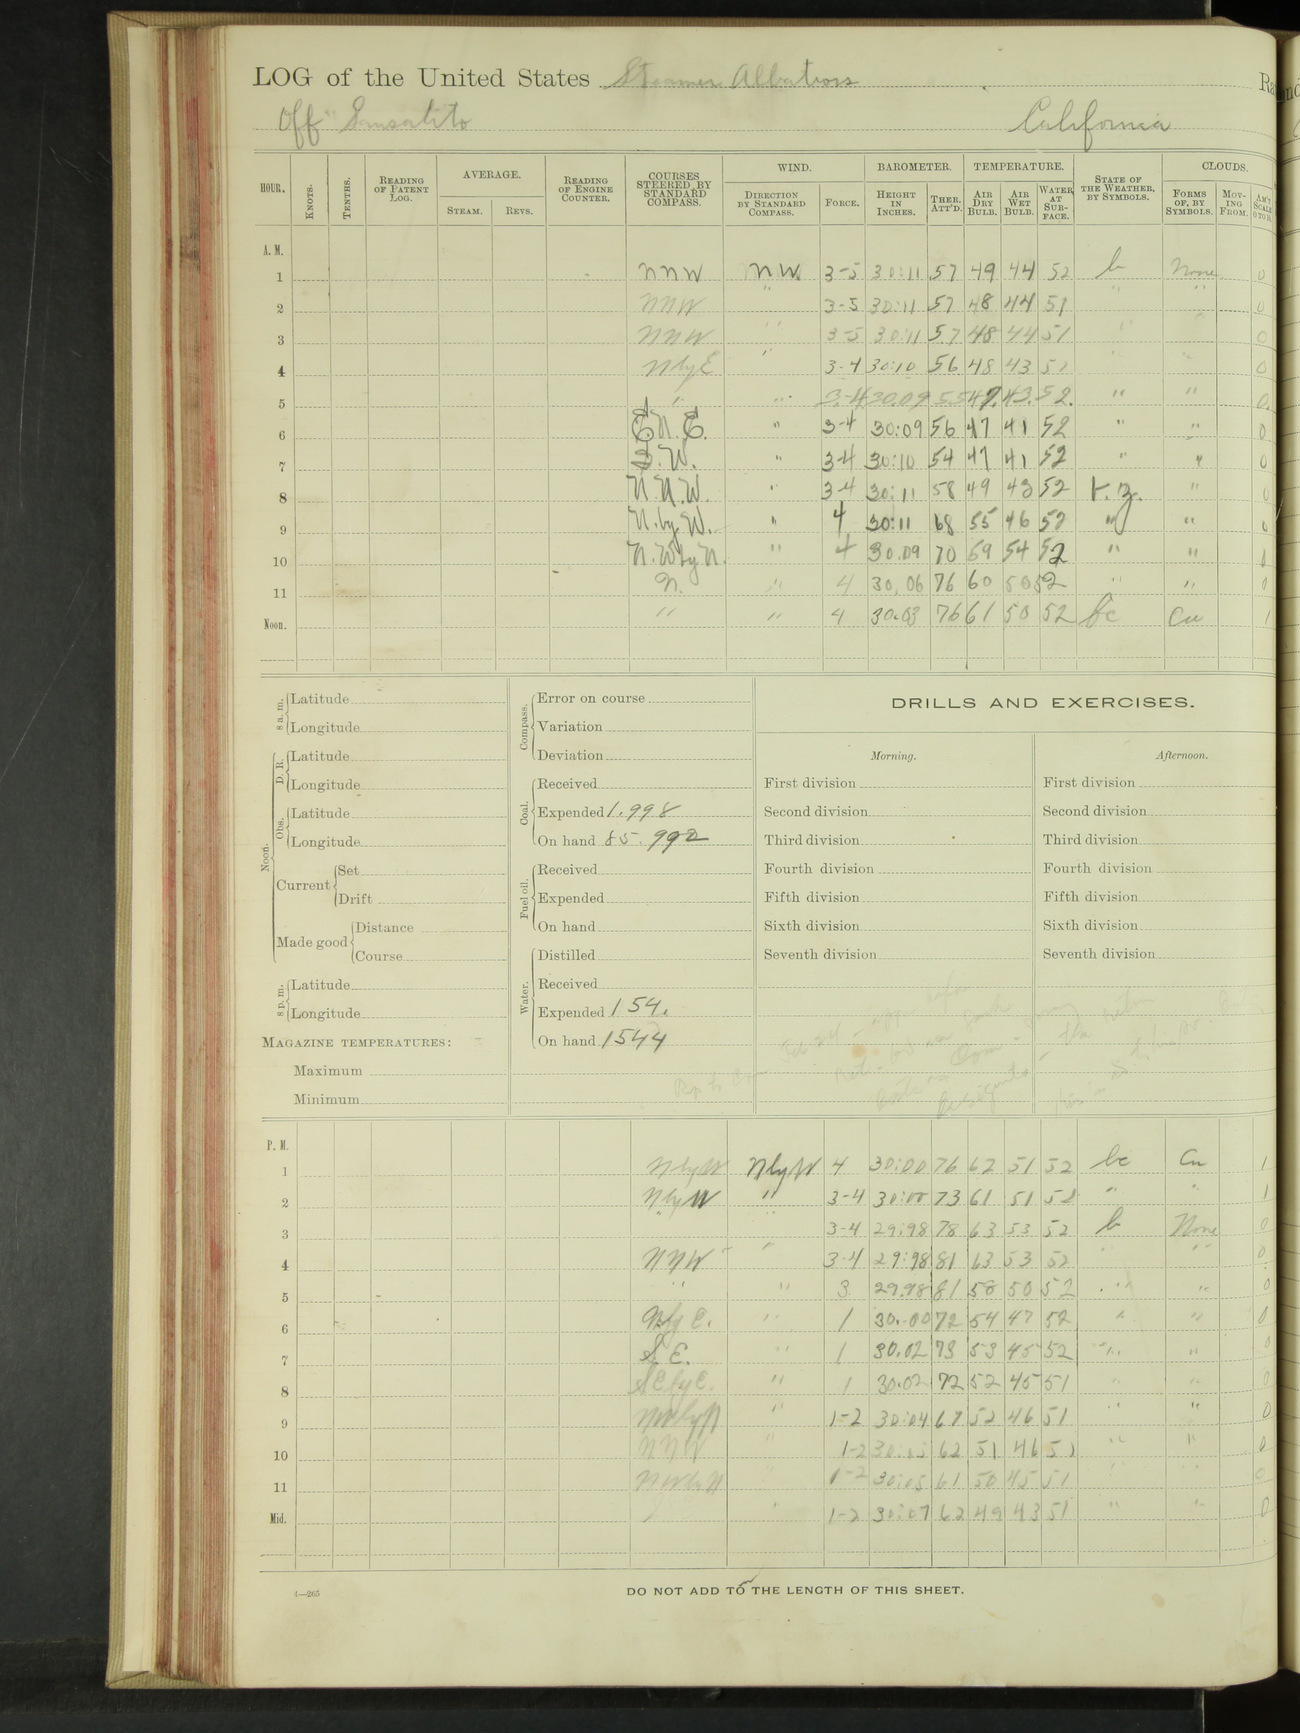 LOG of the United States Steamer Albatross Ra
Off Sausalito California
HOUR. KNOTS. TENTHS. READING OF PATENT LOG. AVERAGE. STEAM. REVS. READING OF ENGINE COUNTER. COURSES STEERED BY STANDARD COMPASS. WIND. DIRECTION BY STANDARD COMPASS. FORCE. BAROMETER. HEIGHT IN INCHES. THER. ATT'D. TEMPERATURE. AIR DRY BULB. AIR WET BULB. WATER AT SURFACE. STATE OF THE WEATHER, BY SYMBOLS. CLOUDS. FORMS OF, BY SYMBOLS. MOVING FROM. AM'T SCALE 0 TO 10.
A. M.
1 NNW NW. 3-5 30:11 57 49 44 52 b None 0
2 NNW " 3-5 30:11 57 48 44 51 " " 0
3 NNW " 3-5 30:11 57 48 44 51 " " 0
4 NbyE " 3-4 30:10 56 48 43 52 " " 0
5 " " 3-4 30.09 55 47. 43. 52. " " 0.
6 E.N.E. " 3-4 30:09 56 47 41 52 " " 0
7 S.W. " 3-4 30:10 54 47 41 52 " " 0
8 N.N.W. " 3-4 30:11 58 49 43 52 " 0
9 N.by W. " 4 30:11 68 55 46 52 " " 0
10 N.W by N. " 4 30.09 70 59 54 52 " " 0
11 N. " 4 30.06 76 60 50 52 " " 0
Noon. " " 4 30.03 76 61 50 52 bc Cu 1
8 a. m. Latitude
Longitude
Noon. D. R. Latitude
Longitude
Obs. Latitude
Longitude
Current Set
Drift
Made good Distance
Course
8 p. m. Latitude
Longitude
MAGAZINE TEMPERATURES:
Maximum
Minimum
Compass. Error on course
Variation
Deviation
Coal. Received
Expended 1.998
On hand 85.992
Fuel oil. Received
Expended
On hand
Water. Distilled
Received
Expended 154.
On hand 1544
DRILLS AND EXERCISES.
Morning. Afternoon.
First division First division
Second division Second division
Third division Third division
Fourth division Fourth division
Fifth division Fifth division
Sixth division Sixth division
Seventh division Seventh division
P. M.
1 NbyW NbyW 4 30:00 76 62 51 52 bc Cu 1
2 NbyW " 3-4 30:00 73 61 51 52 " " 1
3 " 3-4 29:98 78 63 53 52 b None 0
4 NNW " 3-4 29:98 81 63 53 52 " " 0
5 " " 3 29.98 81 58 50 52 " " 0
6 Nby E. " 1 30.00 72 54 47 52 " " 0
7 S.E. " 1 30.02 73 53 45 52 " " 0
8 SEbyE. " 1 30.02 72 52 45 51 " " 0
9 NWbyN " 1-2 30:04 67 52 46 51 " " 0
10 NNW " 1-2 30:05 62 51 46 51 " " 0
11 NWbyN " 1-2 30:05 61 50 45 51 " " 0
Mid. " 1-2 30:07 62 49 43 51 " " 0
4—265
DO NOT ADD TO THE LENGTH OF THIS SHEET.